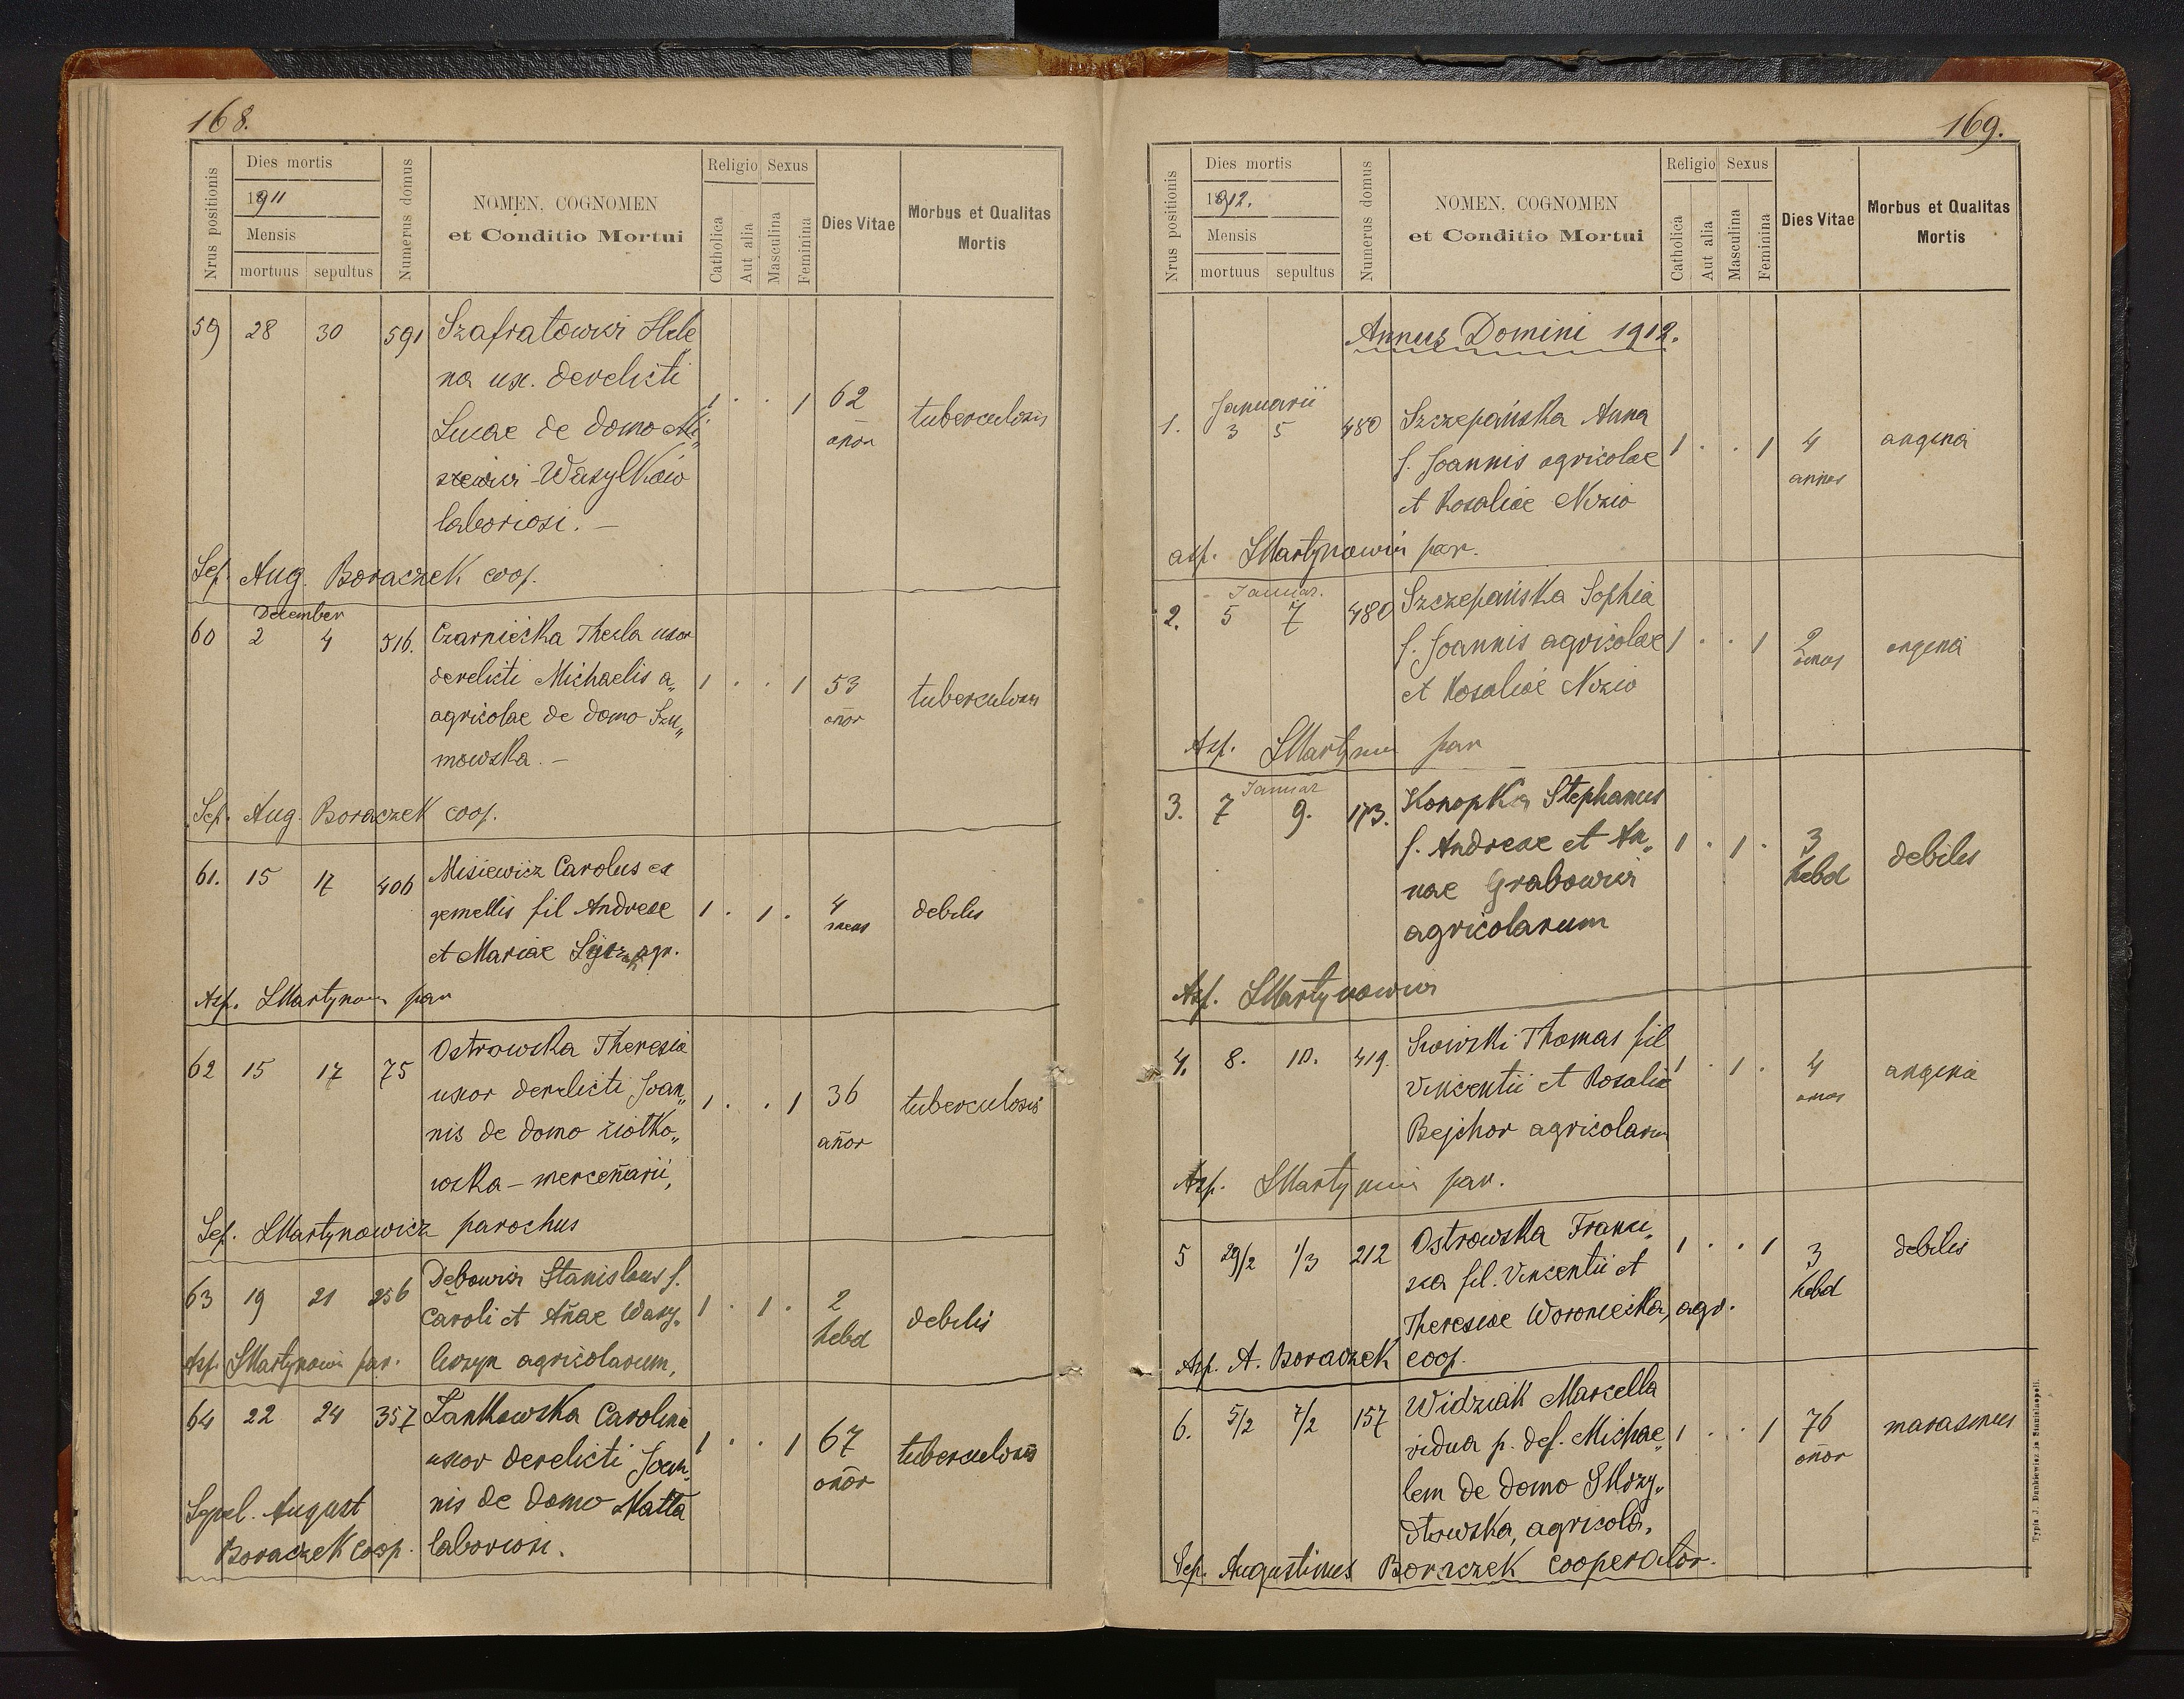 168.
Nrus positionis
Dies mortis
1911
Mensis
mortuus sepultus
Numerus domus
NOMEN, COGNOMEN
et Conditio Mortui
Religio Sexus
Catholica
Aut alia
Masculina
Feminina
Dies Vitae
Morbus et Qualitas
Mortis
59 28 30 591 Szafratowicz Hele„
na ux. derelicti
Lucae de domo Mi„
szewicz - Wasylków
laboriosi. –
1 . . 1 62 tuberculosis
añor
Sep. Aug. Boraczek coop.
December
60 2 4 516. Czarniecka Thecla uxor
derelicti Michaelis a„
agricolae de domo Szu„
mowska. –
1 . . 1 53 tuberculosis
añor
Sep. Aug. Boraczek coop.
61. 15 17 406 Misiewicz Carolus ex
gemellis fil Andreae
et Mariae agr.
1 . 1 . 4 debilis
mens
Asp. SMartynowicz par
62 15 17 75 Ostrowska Theresia
uxor derelicti Joan„
nis de domo Ziółko„
wska – merceñarii,
1 . . 1 36 tuberculosis
añor
Sep. SMartynowicz parochus
63 19 21 256 Dębowicz Stanislaus f.
Caroli et Añae Wasy„
liszyn agricolarum,
1 . 1 . 2 debilis
hebd
Asp. SMartynowi par.
64 22 24 357 Jankowska Carolina
uxor derelicti Joan„
nis de domo Matta
laboriosi.
1 . . 1 67 tuberculosis
añor
Sepel. August
Boraczek coop.
169.
Nrus positionis
Dies mortis
1912.
Mensis
mortuus sepultus
Numerus domus
NOMEN, COGNOMEN
et Conditio Mortui
Religio Sexus
Catholica
Aut alia
Masculina
Feminina
Dies Vitae
Morbus et Qualitas
Mortis
Annus Domini 1912.
Januarii
1. 3 5 480 Szczepańska Anna
f. Joannis agricolae
et Rosaliae
1 . . 1 4 angina
annos
asp. SMartynowicz par.
Januar.
2. 5 7 480 Szczepańska Sophia
f. Joannis agricolae
et Rosaliae
1 . . 1 2 angina
annos
Asp. SMartynow par
Januar
3. 7 9. 173. Konopka Stephanus
f. Andreae et An„
nae Grabowicz
agricolarum
1 . 1 . 3 debilis
hebd
Asp. SMartynowicz
4. 8. 10. 419. Thomas fil
Vincentii et Rosaliae
Bejchor agricolarum
1 . 1 . 4 angina
annos
Asp. SMartynowicz par.
5 29/2 1/3 212 Ostrowska Franci„
sca fil. Vincentii et
Theresiae Woroniecka, agr.
1 . . 1 3 debilis
hebd
Asp. A. Boraczek coop.
6. 5/2 7/2 157 Widziak Marcella
vidua p. def. Michae„
lem de domo
agricola,
1 . . 1 76 marasmus
añor
Sep. Augustinus Boraczek cooperator.
Typis J. Dankiewicz in Stanislaopoli.